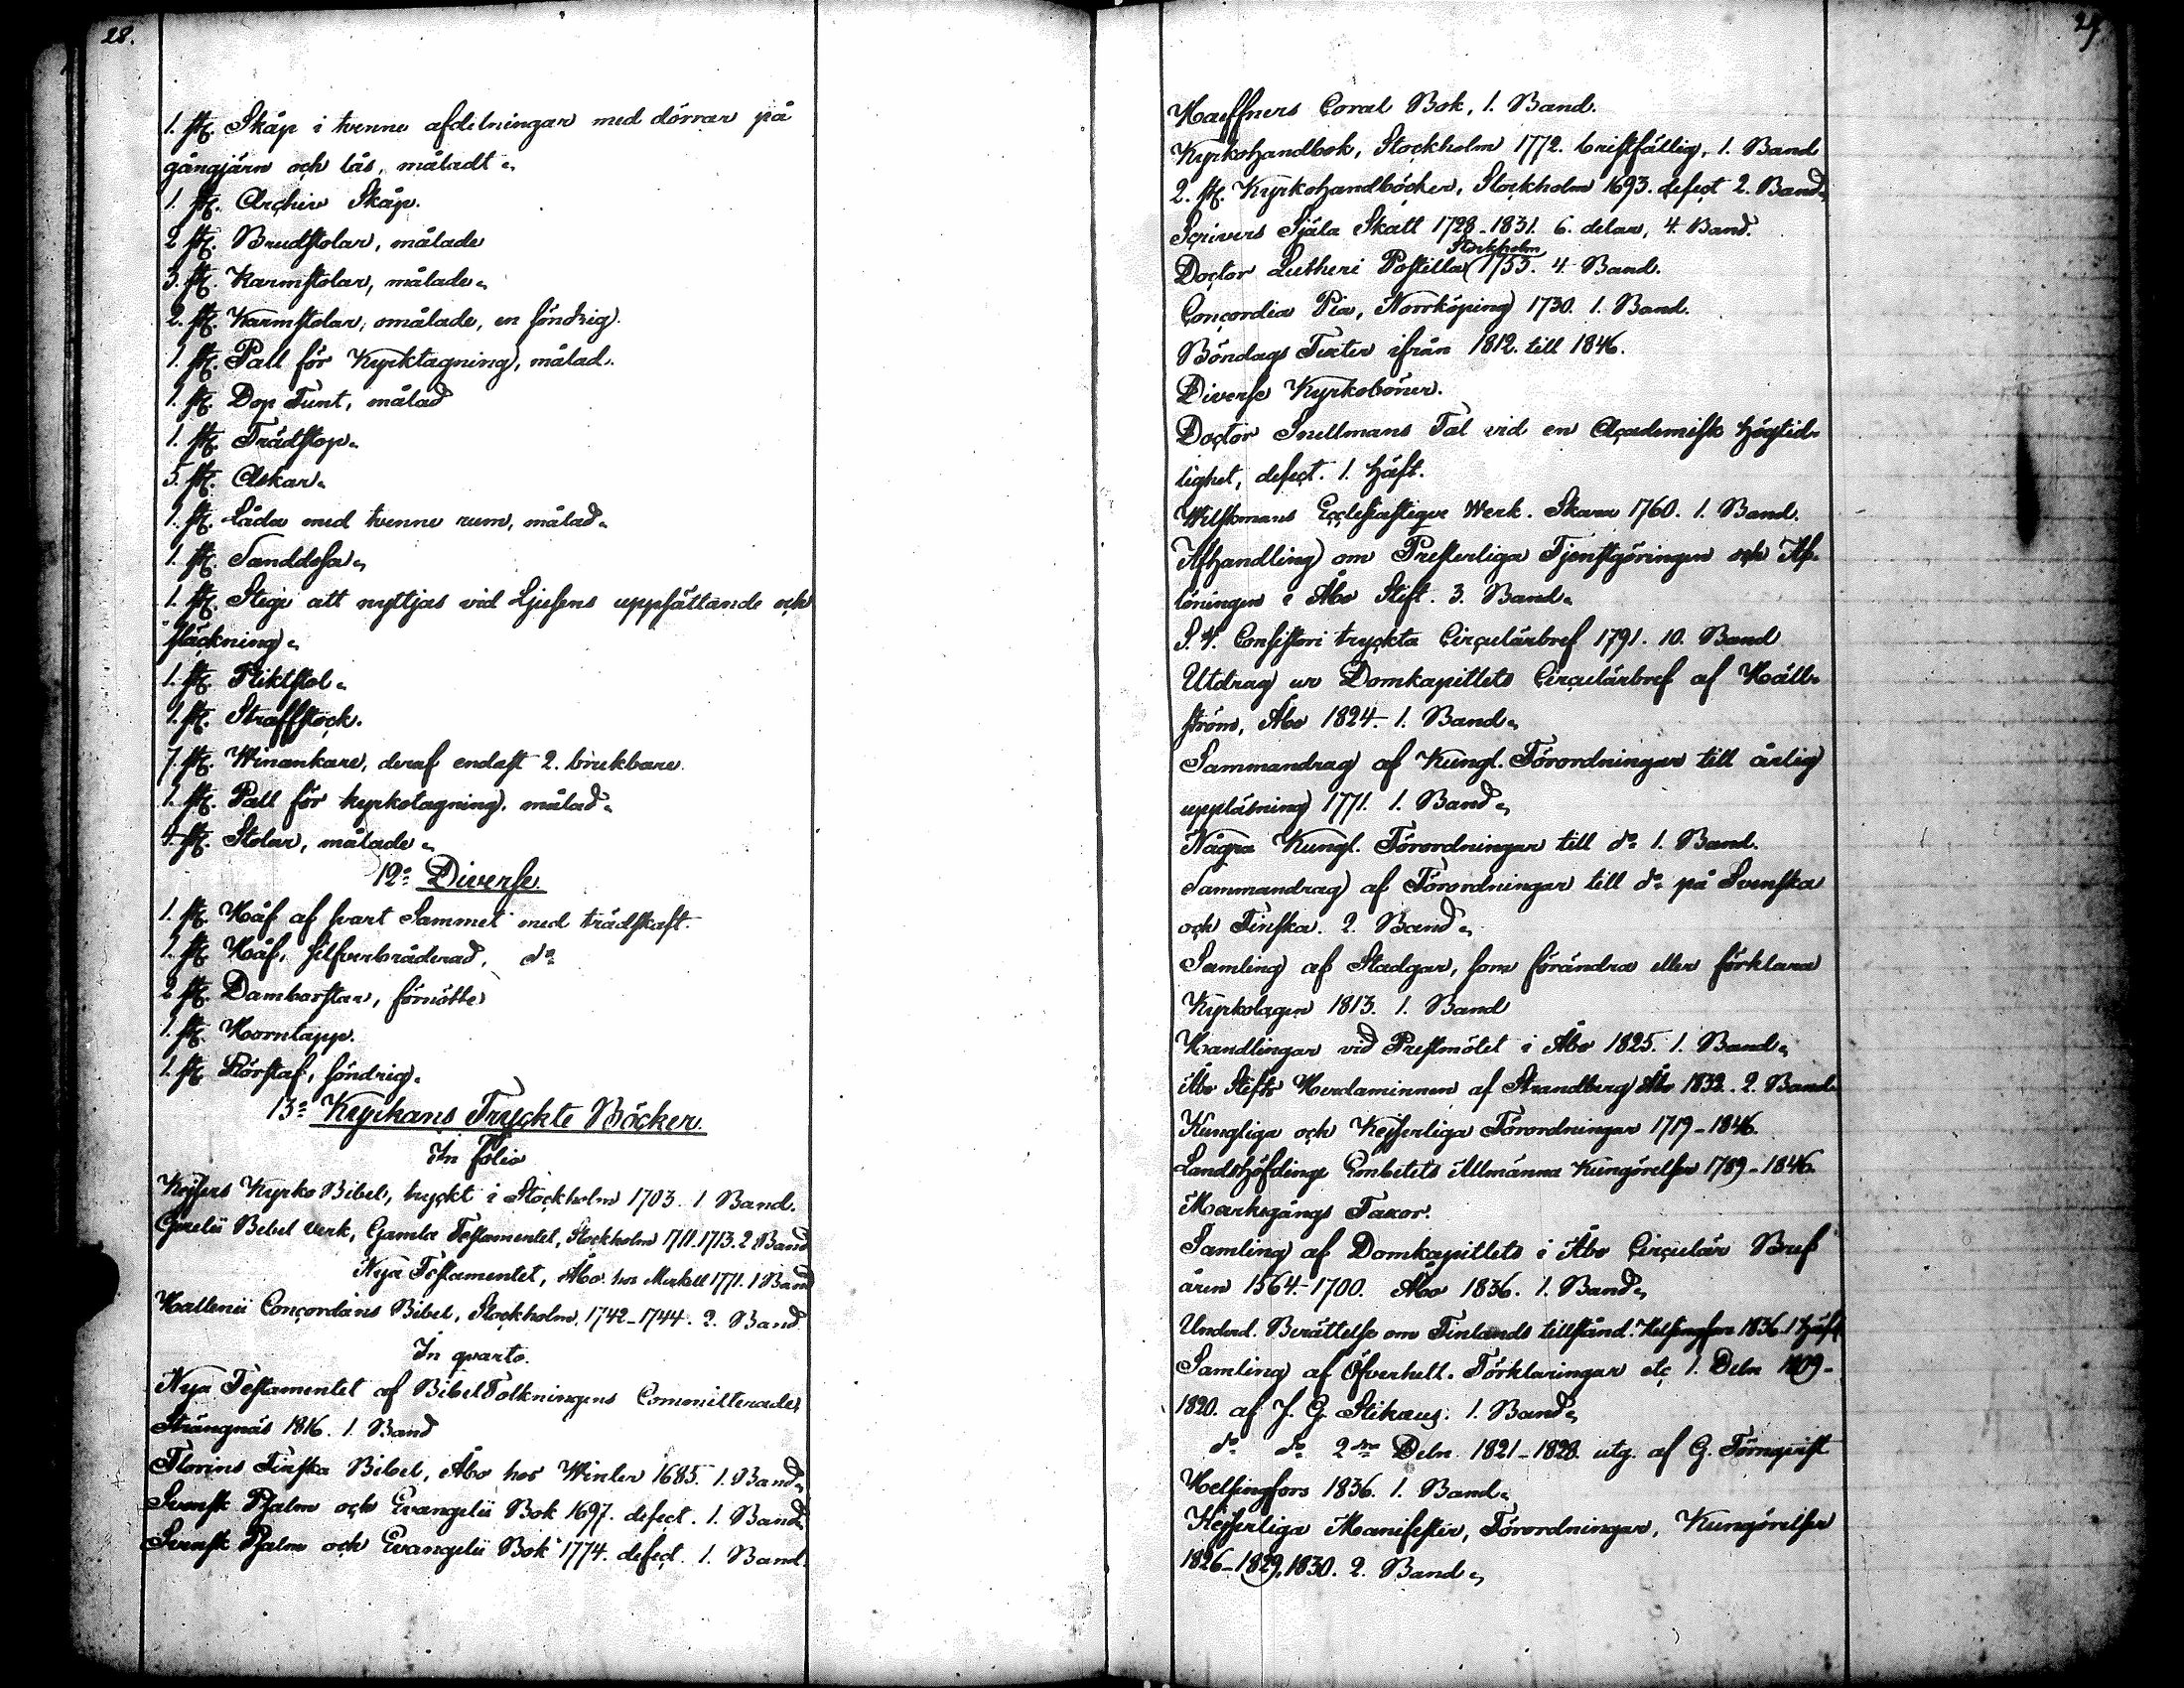 28.
1. st. Skåp i tvenne afdelningar med dörrar på
gångjärn och lås, måladt.
1. st. Archiv Skåp.
2 st. Brudstolar, målade
3. st. Karmstolar, målade.
2. st. Karmstolar, omålade, en söndrig.
1. st. Pall för Kyrktagning, målad.
1. st. Dop Funt, målad
1. st. Trädstop.
5. st. Askar.
1. st. Låda med tvenne rum, målad.
1. st. Sanddosa.
1. st. Stege att nyttjas vid Ljusens uppsättande och
släckning.
1. st. Pliktstol.
1. st. Straffstock.
7. st. Winankare, deraf endast 2. brukbare.
1. st. Pall för kyrkotagning, målad.
4. st. Stolar, målade.
12o Diverse.
1. st. Håf af svart Sammet med trädskaft.
1. st. Håf, silfverbräderad, do
2 st. Damborstar, förnötte
1. st. Korntapp.
1. st. Störstaf, söndrig.
13o Kyrkans Tryckte Böcker.
In folio
Kejsers Kyrko Bibel, tryckt i Stockholm 1703. 1 Band.
Gezelii Bibel verk, Gamla Testamentet, Stockholm 1711-1713. 2 Band
Nya Testamentet, Åbo hos Merkell 1771. 1 Band
Hallenii Concordans Bibel, Stockholm 1742-1744. 2. Band
In quarto.
Nya Testamentet af Bibel Tolkningens Committerade,
Strängnäs 1816. 1. Band
Florins Finska Bibel, Åbo hos Winter 1685. 1. Band.
Svensk Psalm och Evangelii Bok 1697. defect. 1. Band.
Svensk Psalm och Evangelii Bok 1774. defect. 1. Band.
29
Haeffners Coral Bok, 1. Band.
Kyrkohandbok, Stockholm 1772. bristfällig, 1. Band
2. st. Kyrkohandböcker, Stockholm 1693. defect 2. Band.
Scrivers Själa Skatt 1728-1831. 6. delar, 4. Band.
Stockholm
Doctor Lutheri Postilla 1753. 4. Band.
Concordia Pia, Norrköping 1730. 1. Band.
Böndags Texter ifrån 1812. till 1846.
Diverse Kyrkoböner.
Doctor Snellmans Tal vid en Academisk högtid-
lighet, defect. 1. häft.
Wilskmans Ecclesiastique Werk. Skara 1760. 1. Band.
Afhandling om Presterliga Tjenstgöringen och Af-
löningen i Åbo Stift. 3. Band.
S. T. Consistori tryckta Circulärbref 1791. 10. Band
Utdrag ur Domkapitlets Circulärbref af Häll-
ström, Åbo 1824. 1. Band.
Sammandrag af Kungl. Förordningar till årlig
uppläsning 1771. 1. Band.
Några Kungl. Förordningar till do 1. Band.
Sammandrag af Förordningar till do på Svenska
och Finska. 2. Band.
Samling af Stadgar, som förändra eller förklara
Kyrkolagen 1813. 1. Band
Handlingar vid Prestmötet i Åbo 1825. 1. Band.
Åbo Stifts Herdaminnen af Strandberg Åbo 1832. 2. Band.
Kungliga och Kejserliga Förordningar 1719-1846.
Landshöfdinge Embetets Allmänna Kungörelser 1789-1846.
Markegångs Taxor.
Samling af Domkapitlets i Åbo Circulär Bref
åren 1564-1700. Åbo 1836. 1. Band.
Underd. Berättelse om Finlands tillstånd. Helsingfors 1836. 1 häft
Samling af Öfverhetl. Förklaringar etc 1. Deln 1809-
1820. af J. G. 1. Band.
do do 2dra Deln 1821-1828. utg. af G. Törnqvist
Helsingfors 1836. 1. Band.
Kejserliga Manifester, Förordningar, Kungörelser
1826-1829, 1830. 2. Band.